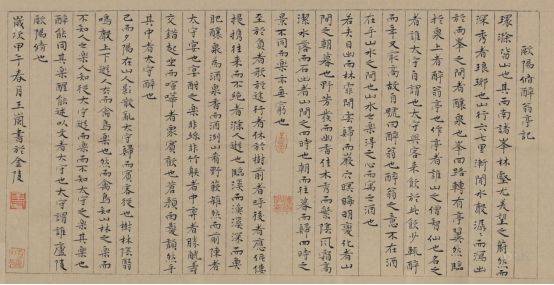 歐陽脩醉翁亭記
環滁皆山也其西南諸峯林壑尤美望之蔚然而
深秀者琅琊也山行六七里漸聞水聲潺潺而瀉出
於兩峯之間者釀泉也峯回路轉有亭翼然臨
於泉上者醉翁亭也作亭者誰山之僧智仙也名之
者誰太守自謂也太守與客來飲於此飲少輒醉
而年又最高故自號曰醉翁也醉翁之意不在酒
在乎山水之間也山水之樂得之心而寓之酒也
若夫日出而林霏開雲歸而巖穴暝晦明變化者山
間之朝暮也野芳發而幽香佳木秀而繁陰風霜高
潔水落而石出者山間之四時也朝而往暮而歸四時之
景不同而樂亦無窮也
至於負者歌於途行者休於樹前者呼後者應傴僂
提攜往來而不絕者滁人遊也臨溪而漁溪深而魚
肥釀泉為酒泉香而酒洌山肴野蔌雜然而前陳者
太守宴也宴酣之樂非絲非竹射者中弈者勝觥籌
交錯起坐而喧嘩者眾賓歡也蒼顏白髮頹然乎
其中者太守醉也
已而夕陽在山人影散亂太守歸而賓客從也樹林陰翳
鳴聲上下遊人去而禽鳥樂也然而禽鳥知山林之樂而
不知人之樂人知從太守遊而樂而不知太守之樂其樂也
醉能同其樂醒能述以文者太守也太守謂誰廬陵
歐陽脩也
歲次甲午春月王嵐書於金陵